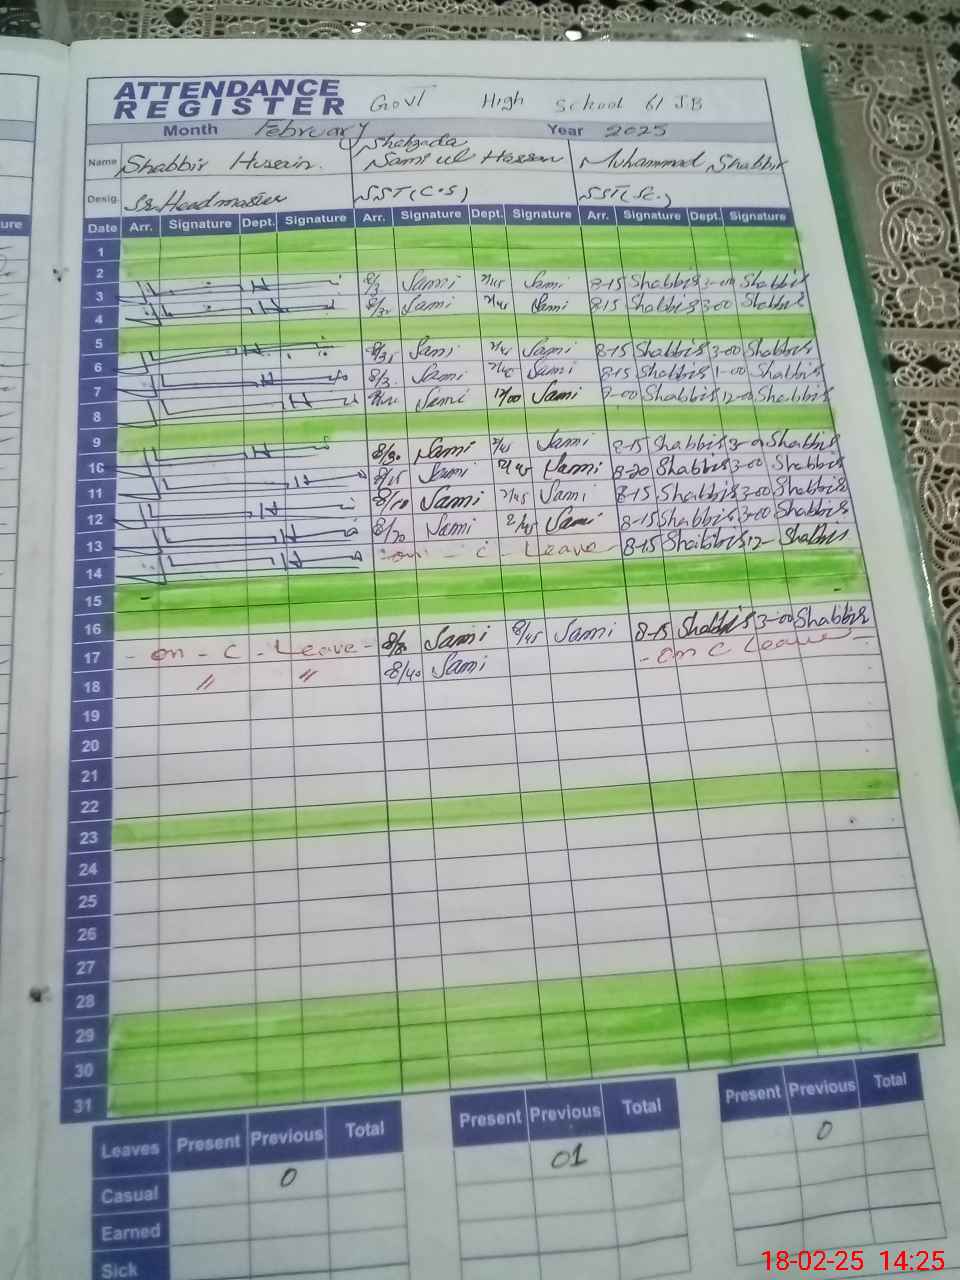 ATTENDANCE REGISTER Govt High School 61 JB
Month February Year 2025
Name Shabbir Husain. Shahzada Sami ul Hassan Muhammad Shabbir
Desig. Sr. Headmaster SST (C.S) SST (SC.)
Date Arr. Signature Dept. Signature Arr. Signature Dept. Signature Arr. Signature Dept. Signature
1
2
3 Sami Sami 8-15 Shabbir 3-00 Shabbir
4 Sami Sami 8-15 Shabbir 3-00 Shabbir
5
6 Sami Sami 8-15 Shabbir 3-00 Shabbir
7 Sami Sami 8-15 Shabbir 1-00 Shabbir
8 Sami 12/00 Sami Shabbir 12-00 Shabbir
9
10 8/30 Sami Sami 8-15 Shabbir Shabbir
11 8/15 Sami Sami 8-20 Shabbir 3-00 Shabbir
12 8/10 Sami Sami 8-15 Shabbir 3-00 Shabbir
13 8/20 Sami 2/45 Sami 8-15 Shabbir 3-00 Shabbir
14 on - C - Leave - 8-15 Shabbir 12- Shabbir
15
16
17 - on - C - Leave - Sami 8/45 Sami 8-15 Shabbir 3-00 Shabbir
18 " " 8/40 Sami - on C Leave
19
20
21
22
23
24
25
26
27
28
29
30
31
Leaves Present Previous Total Present Previous Total Present Previous Total
Casual 0 01 0
Earned
Sick
ure
18-02-25 14:25